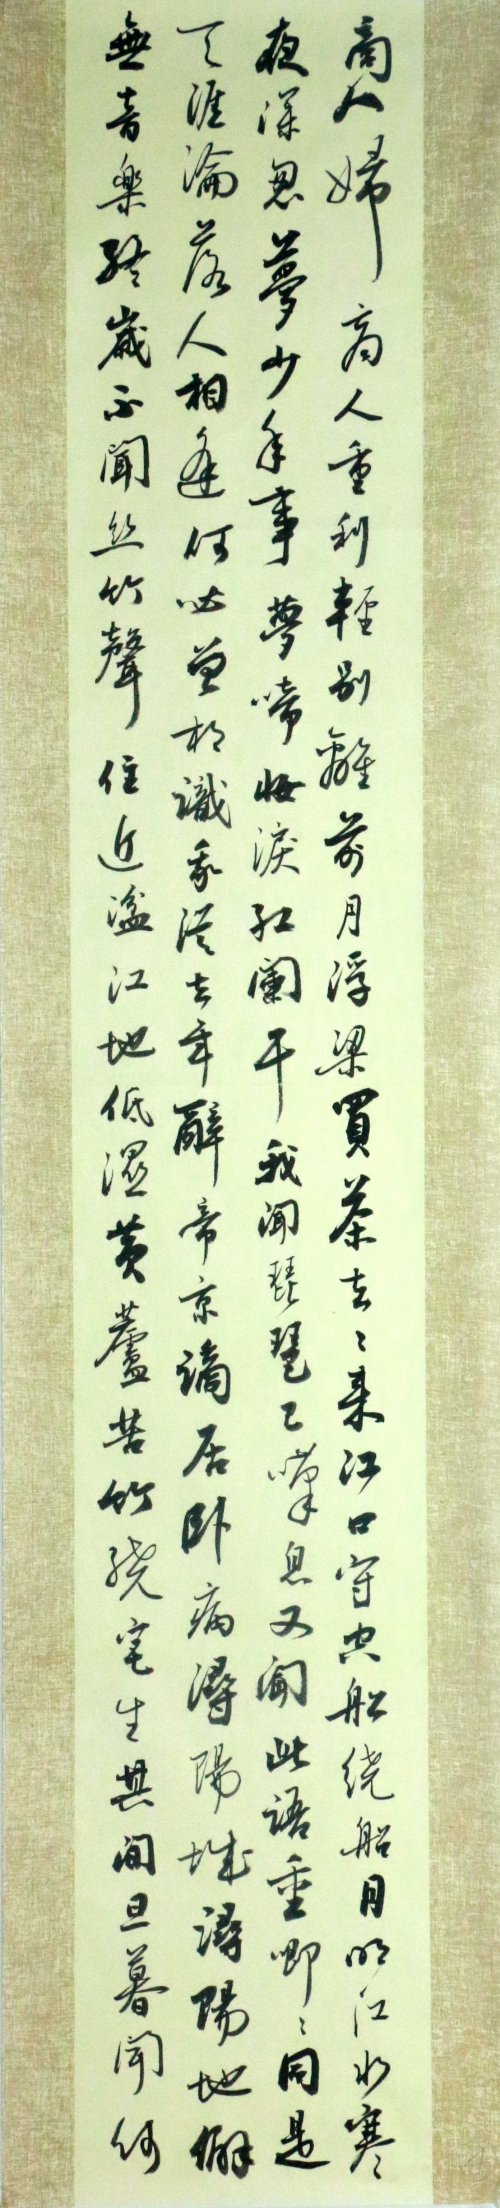 商人婦商人重利輕别離前月浮梁買茶去〻来江口守空船绕船月明江水寒
夜深忽夢少年事夢啼妝淚红闌干我聞琵琶已嘆息又聞此語重唧〻同是
天涯淪落人相逢何必曾相識我從去年辭帝京謫居卧病潯陽城潯陽地僻
無音樂終歲不聞丝竹聲住近湓江地低濕黄蘆苦竹绕宅生其間旦暮聞何